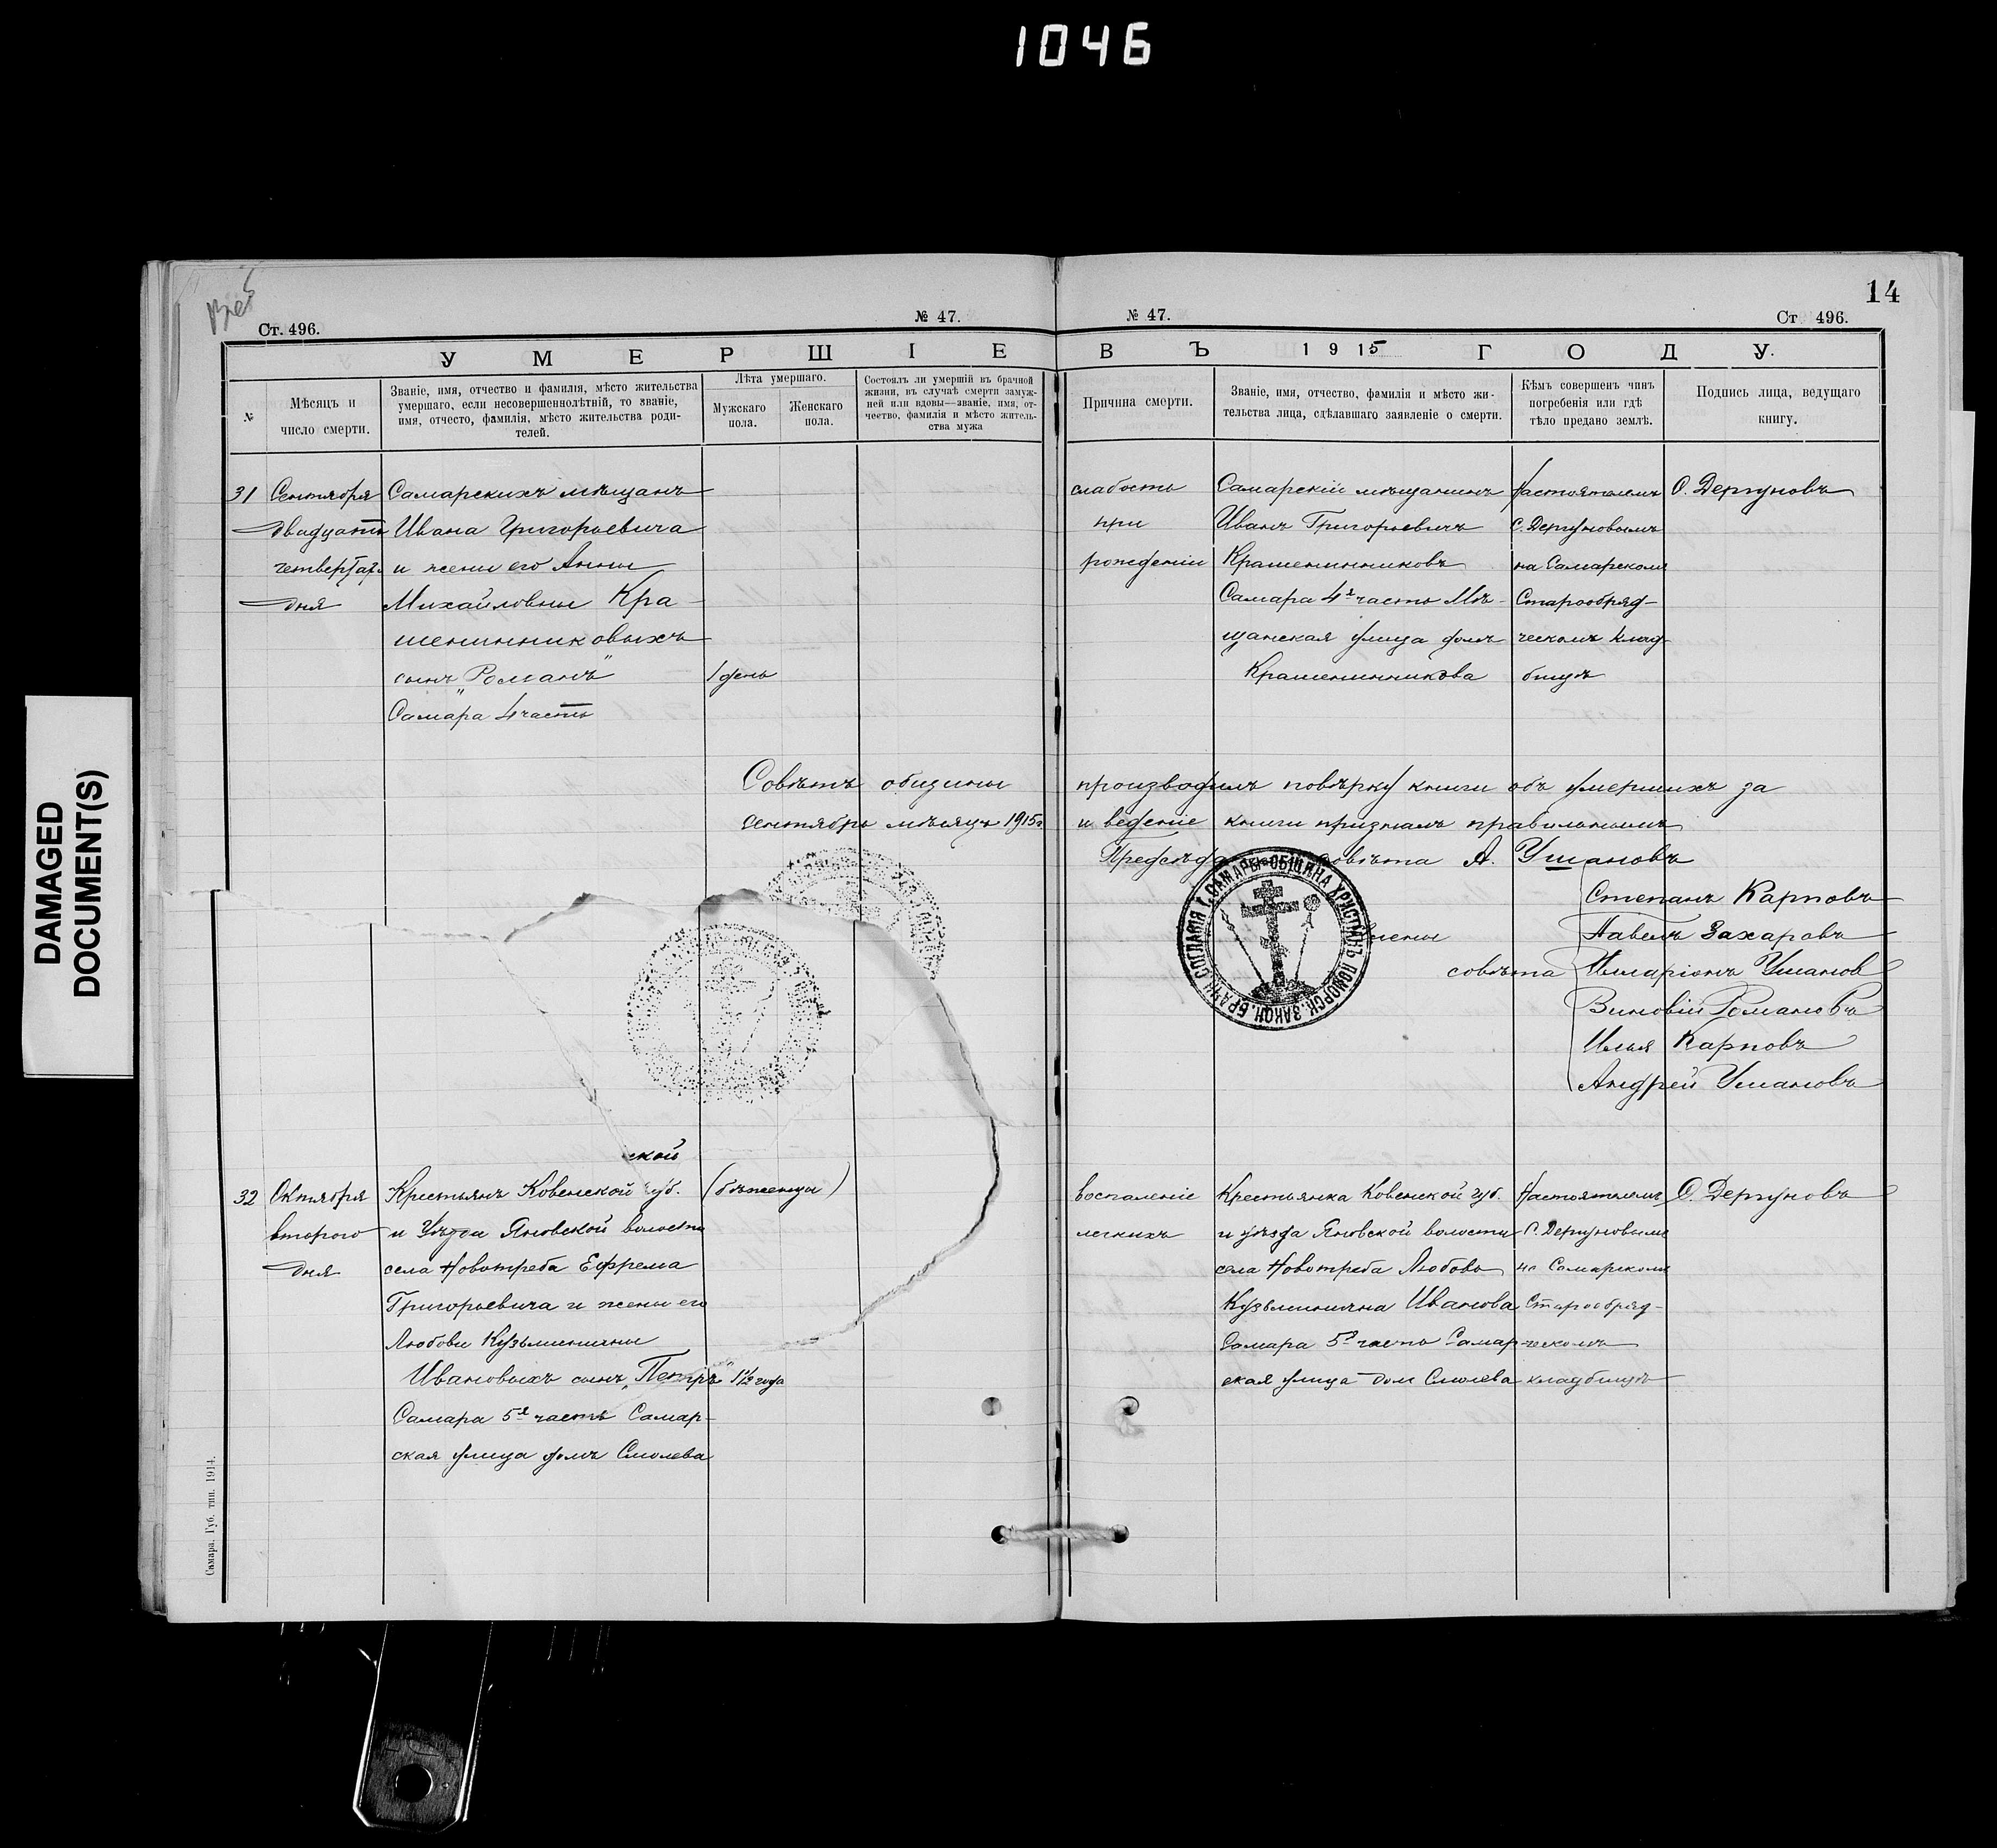 1046
DAMAGED
DOCUMENT(S)
14
Ст. 496.
№ 47.
№ 47.
Ст 496.
УМЕРШІЕ ВЪ 1915 ГОДУ.
№
Мѣсяцъ и
число смерти.
Званіе, имя, отчество и фамилія, мѣсто жительства
умершаго, если несовершеннолѣтній, то званіе,
имя, отчесто, фамилія, мѣсто жительства роди-
телей.
Лѣта умершаго.
Мужскаго
пола.
Женскаго
пола.
Состоялъ ли умершій въ брачной
жизни, въ случаѣ смерти замуж-
ней или вдовы—званіе, имя, от-
чество, фамилія и мѣсто житель-
ства мужа
Причина смерти.
Званіе, имя, отчество, фамилія и мѣсто жи-
тельства лица, сдѣлавшаго заявленіе о смерти.
Кѣмъ совершенъ чинъ
погребенія или гдѣ
тѣло предано землѣ.
Подпись лица, ведущаго
книгу.
31
Сентября
двадцать
четвертаго
дня
Самарскихъ мѣщанъ
Ивана Григорьевича
и жены его Анны
Михайловны Кра-
шенинниковыхъ
сынъ „Романъ"
Самара 4 часть
1 день
слабость
при
рожденіи
Самарскій мѣщанинъ
Иванъ Григорьевичъ
Крашенинниковъ
Самара 4я часть Мѣ-
щанская улица домъ
Крашенинникова
Настоятелемъ
С. Дергуновымъ
на Самарскомъ
Старообряд-
ческомъ клад-
бищѣ
С. Дергуновъ
Совѣтъ общины производилъ повѣрку книги объ умершихъ за
сентябрь мѣсяцъ 1915 г. и веденіе книги призналъ правильнымъ
Предсѣда совѣта А. Ушановъ
Степанъ Карповъ
члены Павелъ Захаровъ
совѣта Иларіонъ Ушанов
Зиновій Романовъ
Илья Карповъ
Андрей Ушановъ
САМАРЫ ОБЩИНА ХРИСТІАНЪ ПОМОРСК. ЗАКОН. БРАЧН. СОГЛАСІЯ Г.
ской
32
Октября
второго
дня
Крестьянъ Ковенской губ.
и Уѣзда Яновской волости
села Новотреба Ефрема
Григорьевича и жены его
Любови Кузьминичны
Ивановыхъ сынъ „Петръ"
Самара 5я часть Самар-
ская улица домъ Смолева
(бѣженцы)
1 1/2 года
воспаленіе
легкихъ
Крестьянка Ковенской губ.
и уѣзда Яновской волости
села Новотреба Любовь
Кузьминична Иванова
Самара 5я часть Самар-
ская улица дом Смолева
Настоятелемъ
С. Дергуновымъ
на Самарскомъ
Старообряд-
ческомъ
кладбищѣ
С. Дергуновъ
Самара. Губ. тип. 1914.